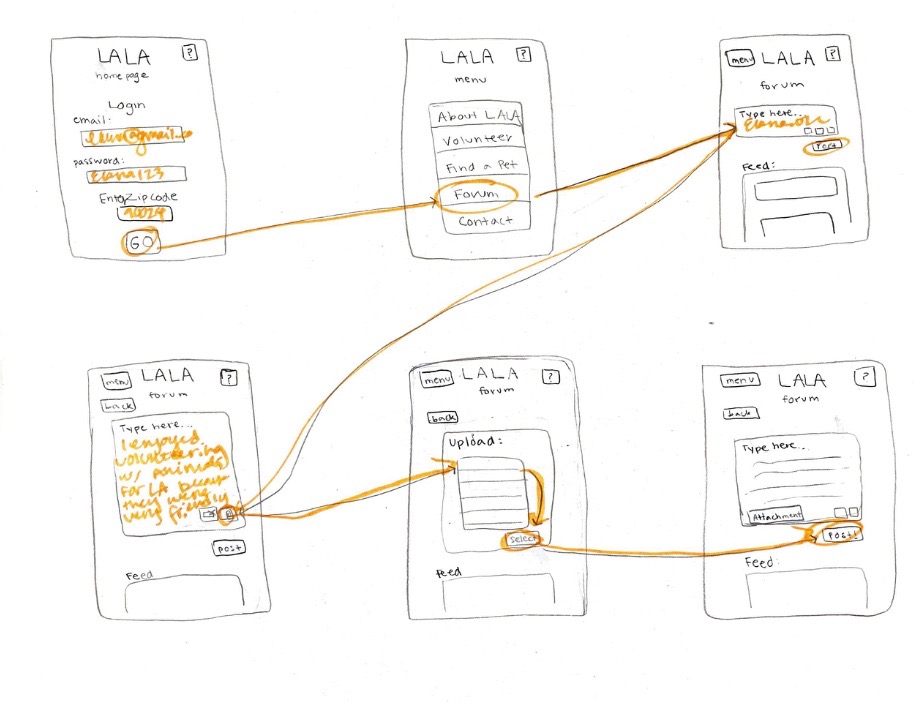 LALA
?
homepage
Login
email:
password:
Elana123
Enter Zipcode
90024
GO
LALA
?
menu
About LALA
Volunteer
Find a Pet
Forum
Contact
menu
LALA
?
forum
Type here..
Post
Feed:
menu
LALA
?
forum
back
Type here...
I enjoyed
volunteering
w/ animals
for LA because
they were
very friendly
post
Feed
menu
LALA
?
forum
back
Upload:
select
Feed
menu
LALA
?
forum
back
Type here...
Attachment
post
Feed: